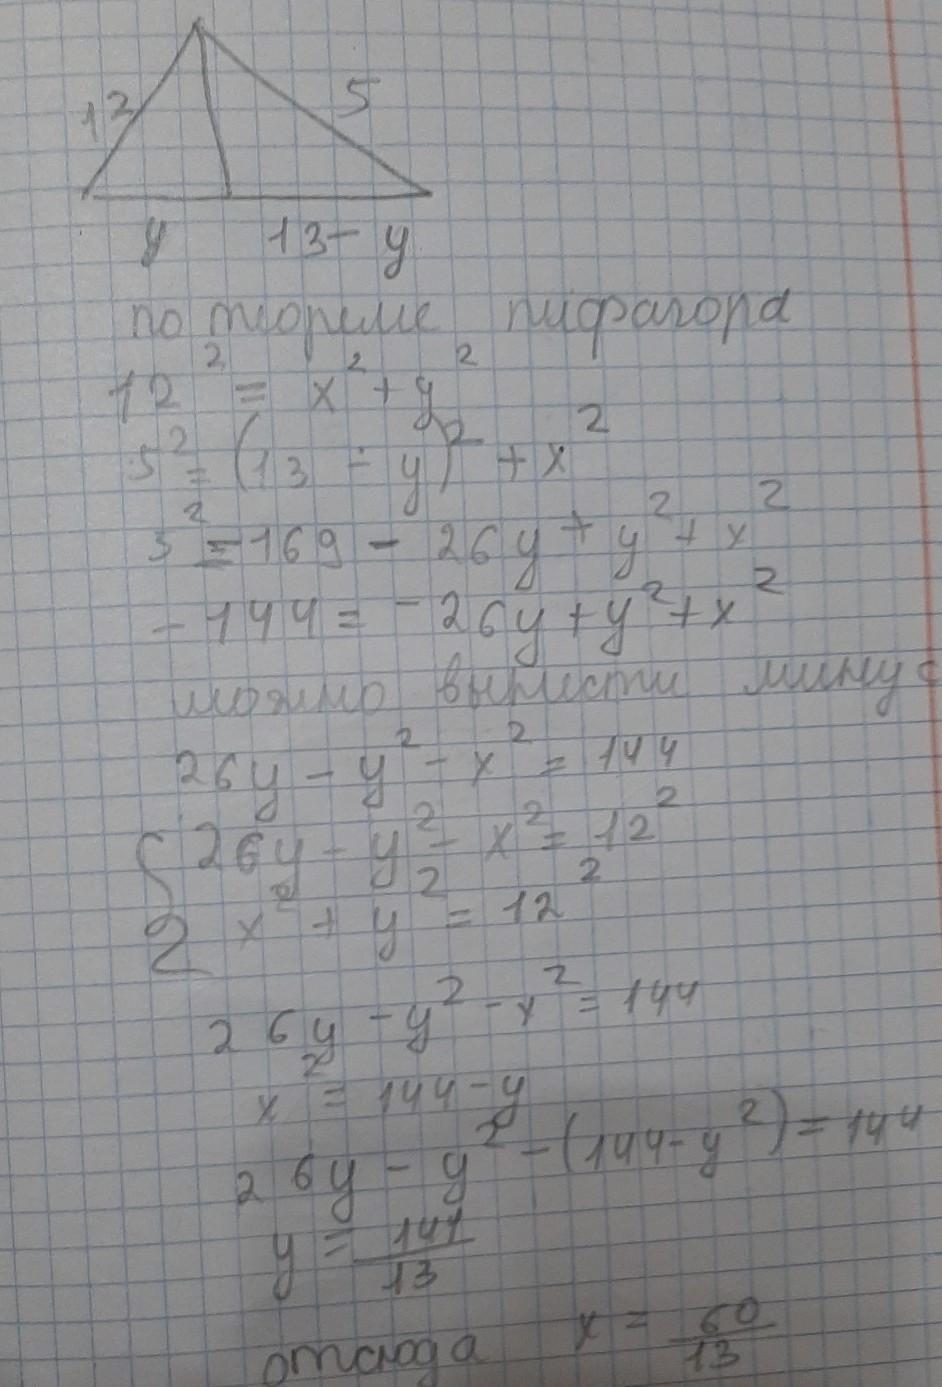 12
5
y 13 - y
по теореме пифагора
12² = x² + y²
5² = (13 - y)² + x²
5² = 169 - 26y + y² + x²
- 144 = - 26y + y² + x²
можно вынести минус
26y - y² - x² = 144
26y - y² - x² = 12²
x² + y² = 12²
26y - y² - x² = 144
x² = 144 - y
26y - y² - (144 - y²) = 144
y = 144/13
отсюда x = 60/13